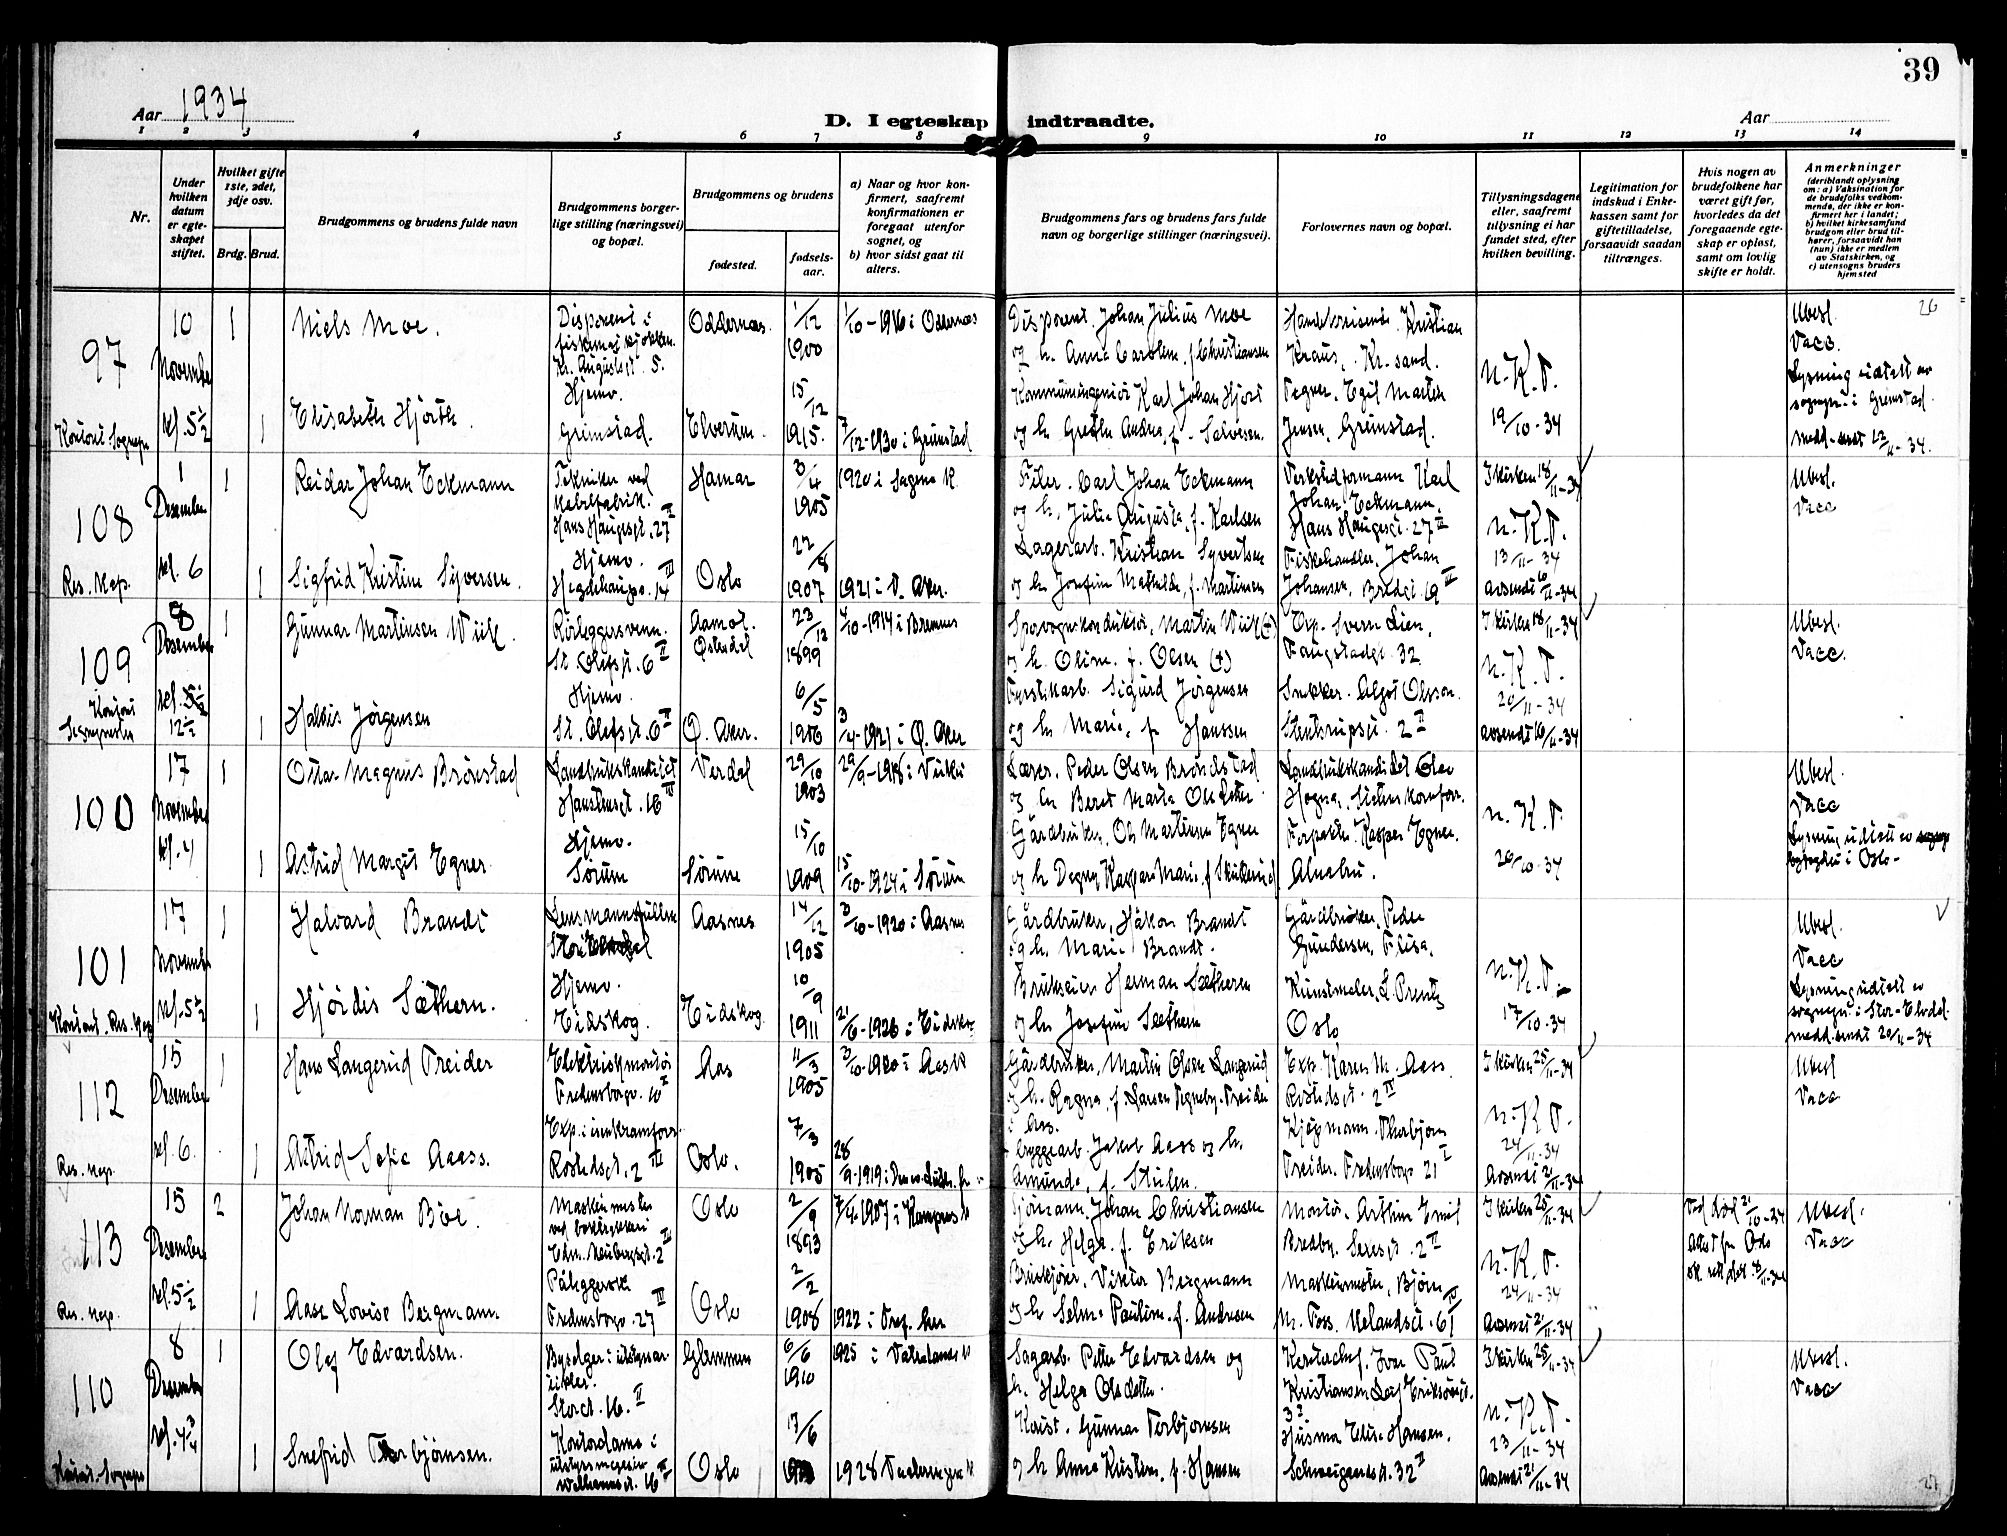 39
Aar 1934
D. I egteskap indtraadte.
Aar
1 2 3 4 5 6 7 8 9 10 11 12 13 14
Nr.
Under hvilken datum er egteskapet stiftet.
Hvilket gifte 1ste, 2det, 3dje osv.
Brdg. Brud.
Brudgommens og brudens fulde navn
Brudgommens borgerlige stilling (næringsvei) og bopæl.
Brudgommens og brudens
fødested.
fødselsaar.
a) Naar og hvor konfirmert, saafremt konfirmationen er foregaat utenfor sognet, og
b) hvor sidst gaat til alters.
Brudgommens fars og brudens fars fulde navn og borgerlige stillinger (næringsvei).
Forlovernes navn og bopæl.
Tillysningsdagene eller, saafremt tillysning ei har fundet sted, efter hvilken bevilling.
Legitimation for indskud i Enkekassen samt for giftetilladelse, forsaavidt saadan tiltrænges.
Hvis nogen av brudefolkene har været gift før, hvorledes da det foregaaende egteskap er opløst, samt om lovlig skifte er holdt.
Anmerkninger
(deriblandt oplysning om: a) Vaksination for de brudefolks vedkommende, der ikke er konfirmert her i landet; b) hvilket kirkesamfund brudgom eller brud tilhører, forsaavidt han (hun) ikke er medlem av Statskirken, og c) utensogns bruders hjemsted
97
10 November kl. 5½
1 Niels Moe.
Disponent i
Kr. Augustsgt. 5.
Oddernes.
1/12 1900
1/10-1916 i Oddernes
Disponent Johan Julius Moe
og h. Anna Caroline f. Christiansen
Kristian
Kraus, Kr.sand.
N.K.T.
19/10-34
Ubesl.
Vacc.
26
1 Elisabeth Hjorth
Hjemv.
Grimstad.
Elverum.
15/12 1915.
12-1930 i Grimstad
Karl Johan Hjort
og h. Grethe Andrea f. Salvesen.
Tegner, Egil Marten
Jensen, Grimstad.
Lysning utstedt av
sognepr. i Grimstad.
Medd. sendt 22/11-34.
108
1 Desember kl. 6
Res. kap.
1 Reidar Johan Eckmann
Tekniker ved
Kabelfabrik.
Hans Haugesgt. 27 II
Hamar
3/4 1905
1920 i Sagene K.
Filer. Carl Johan Eckmann
og h. Julie Augusta, f. Karlsen
Verkstedformann Karl
Johan Eckmann,
Hans Haugesgt. 27 II
I kirken 18/11-34
N.K.T.
13/11-34
Ubesl.
Vacc
1 Sigfrid Kristine Syversen.
Hjemv.
Hegdehaugsv. 14 III
Oslo
22/8 1907
1921 i V. Aker.
Lagerarb. Kristian Syvertsen
og h. Josefine Mathilde, f. Martinsen
Fiskehandler, Johan
Johansen, Bredgt. 19 II
109
8 Desember
Kontont
12½
1 Gunnar Martinsen Wiik.
Rørleggersvenn.
St. Olafsgt. 6 II
Aamot.
Østerdal
23/12 1899
4/10-1914 i Bremnes
Sporvognskonduktør, Martin Wiik (+)
og h. Oline f. Olsen (+)
Exp. Sverre Lien,
Vaugstadgt. 32
I kirken 18/11-34
N.K.T.
20/11-34
avsendt 16/11-34
Ubesl.
Vacc.
1 Haldis Jørgensen
Hjemv.
St. Olafsgt. 6 II
Ø. Aker.
6/5 1906
3/4-1921 i Ø. Aker
Fyrstikarb. Sigurd Jørgensen
og h. Marie, f. Hanssen
Snekker. Algot Olsson.
Stenstrupsgt. 2 II
100
17 November kl. 4
1 Ottar Magnus Brønstad
Landbrukskandidat
Hansteensgt. 16 IV
Verdal
29/10 1903
29/9-1918 i Vuku
Lærer. Peder Olsen Brønstad
og h. Beret Marta Olsdatter
Landbrukskandidat Olav
Hogna, Statens kornforr.
N.K.T.
20/10-34
Ubesl.
Vacc
1 Astrid Margit Egner.
Hjemv.
Sørum
Sørum
15/10 1909
15/10-1924 i Sørum
Gårdbruker, Ole Martinsen Egner
Forpakter. Kasper Egner.
Alnabru.
101
17 November kl. 5½
Kontont. Res. kap
1 Halvard Brandt
Lensmannsfullm.
Aasnes
14/12 1905
3/10-1920 i Aasnes
Gårdbruker, Håkon Brandt
og h. Marie Brandt.
Gårdbruker, Peder
Gundersen, Flisa.
N.K.T.
17/10-34
Ubesl.
Vacc
1 Hjørdis Sæthern.
Hjemv.
Eidskog.
Eidskog
10/9 1911
21/6-1926 i Eidskog
Brukseier Herman Sætheren
og h. Josefine Sæthern
Kunstmaler, L. Prentz
Oslo
Lysning utstedt av
sognepr. i Stor-Elvdal.
medd. sendt 20/11-34
112
15 Desember kl. 6.
Res. kap.
1 Hans Langerud Treider
Elektriskmontør
Fredensborgv. 10 I
Aas
11/3 1905
3/10-1920 i Aas K
Gårdbruker, Martin Olsen Langerud
og h. Ragna, f. Larsen Tegneby-Treider
Aas.
Exp. Karen M. Aass.
Rostedsgt. 2 IV
I kirken 25/11-34
N.K.T.
24/11-34
Avsendt 21/11-34
Ubesl
Vacc
1 Astrid Sofie Aass.
Exp. i isenkramforr.
Rostedsgt. 2 III
Oslo.
7/3 1905
Jakob Aass og h.
Amunda, f. Stulen.
Kjøpmann. Thorbjørn
Treider. Fredensborgv 21 I
113
15 Desember kl. 5½
Res. kap.
2 Johan Norman Bøe.
Maskinmester
ved boktrykkeri
Edv. Neubergsgt. 2 II
Oslo
2/9 1893
7/4-1907 i Kampens K
Sjømann, Johan Christiansen
og h. Helga f. Eriksen
Montør. Arthur Emil
Bredby. Seresgt. 2 II
I kirken 25/11-34
N.K.T.
24/11-34
Avsendt 21/11-34
Ved død 21/10-34
Attest fra Oslo
sk. rett dat. 8/11-34
Ubesl.
Vacc
1 Aase Lovise Bergmann
Påleggerske
Fredensborgv. 27 IV
Oslo
2/2 1908
1922 i Tref. her
Bruskjører. Viktor Bergmann
og h Selma Pauline f. Andresen
Maskinmester, Bjørn
M. Foss. Uelandsgt. 61 IV
110
8 Desember kl. 4¾
1 Olaf Edvardsen.
Storgt. 16. II
Glemmen
6/6 1910
1925 i Vaterlands K
Sagarb. Petter Edvardsen og
h. Helga Olsdatter.
Kontorchef. Ivar Paul
Kristiansen Leif Eriksønsgt.
32
I kirken 25/11-34
N.K.T.
23/11-34
Avsendt 21/11-34
Ubesl.
Vacc
1 Snefrid Thorbjørnsen.
Kontordame i
Wilhelmsgt. 16 II
Oslo
17/6
1928
Konst. Gunnar Torbjørnsen
og h Anna Kristine, f. Hansen
Husmor Elise Hansen.
Schweigaardsgt. 32 I
27